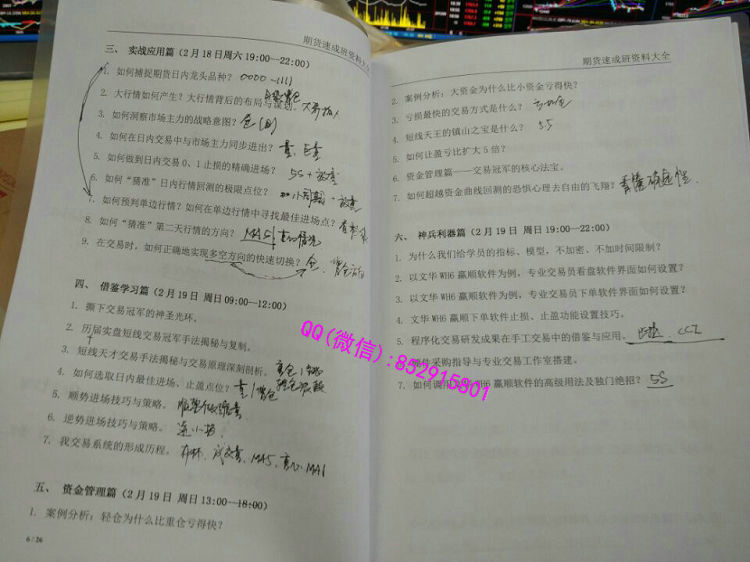 期货速成班资料大全
三、 实战应用篇（2 月 18 日周六 19:00—22:00）
1. 如何捕捉期货日内龙头品种？ 0000 -1111
2. 大行情如何产生？大行情背后的布局与谋划。
3. 如何洞察市场主力的战略意图？
4. 如何在日内交易中与市场主力同步进出？
5. 如何做到日内交易 0、1 止损的精确进场？ 5S +
6. 如何“猜准”日内行情回测的极限点位？
7. 如何预判单边行情？如何在单边行情中寻找最佳进场点？
8. 如何“猜准”第二天行情的方向？ MA5
9. 在交易时，如何正确地实现多空方向的快速切换？
四、 借鉴学习篇（2 月 19 日 周日 09:00—12:00）
1. 撕下交易冠军的神圣光环。
2. 历届实盘短线交易冠军手法揭秘与复制。
3. 短线天才交易手法揭秘与交易原理深刻剖析。
4. 如何选取日内最佳进场、止盈点位？
5. 顺势进场技巧与策略。
6. 逆势进场技巧与策略。
7. 我交易系统的形成历程。 布林、成交量、MA5、
五、 资金管理篇（2 月 19 日 周日 13:00—18:00）
1. 案例分析：轻仓为什么比重仓亏得快？
6 / 26
期货速成班资料大全
2. 案例分析：大资金为什么比小资金亏得快？
3. 亏损最快的交易方式是什么？
4. 短线天王的镇山之宝是什么？ 5S
5. 如何让盈亏比扩大 5 倍？
6. 资金管理篇——交易冠军的核心法宝。
7. 如何超越资金曲线回测的恐惧心理去自由的飞翔？
六、 神兵利器篇（2 月 19 日 周日 19:00—22:00）
1. 为什么我们给学员的指标、模型，不加密、不加时间限制？
2. 以文华 WH6 赢顺软件为例，专业交易员看盘软件界面如何设置？
3. 以文华 WH6 赢顺软件为例，专业交易员下单软件界面如何设置？
4. 文华 WH6 赢顺下单软件止损、止盈功能设置技巧。
5. 程序化交易研发成果在手工交易中的借鉴与应用。 CCI
件采购指导与专业交易工作室搭建。
7. 如何调用 WH6 赢顺软件的高级用法及独门绝招？ 5S
QQ(微信):852915801